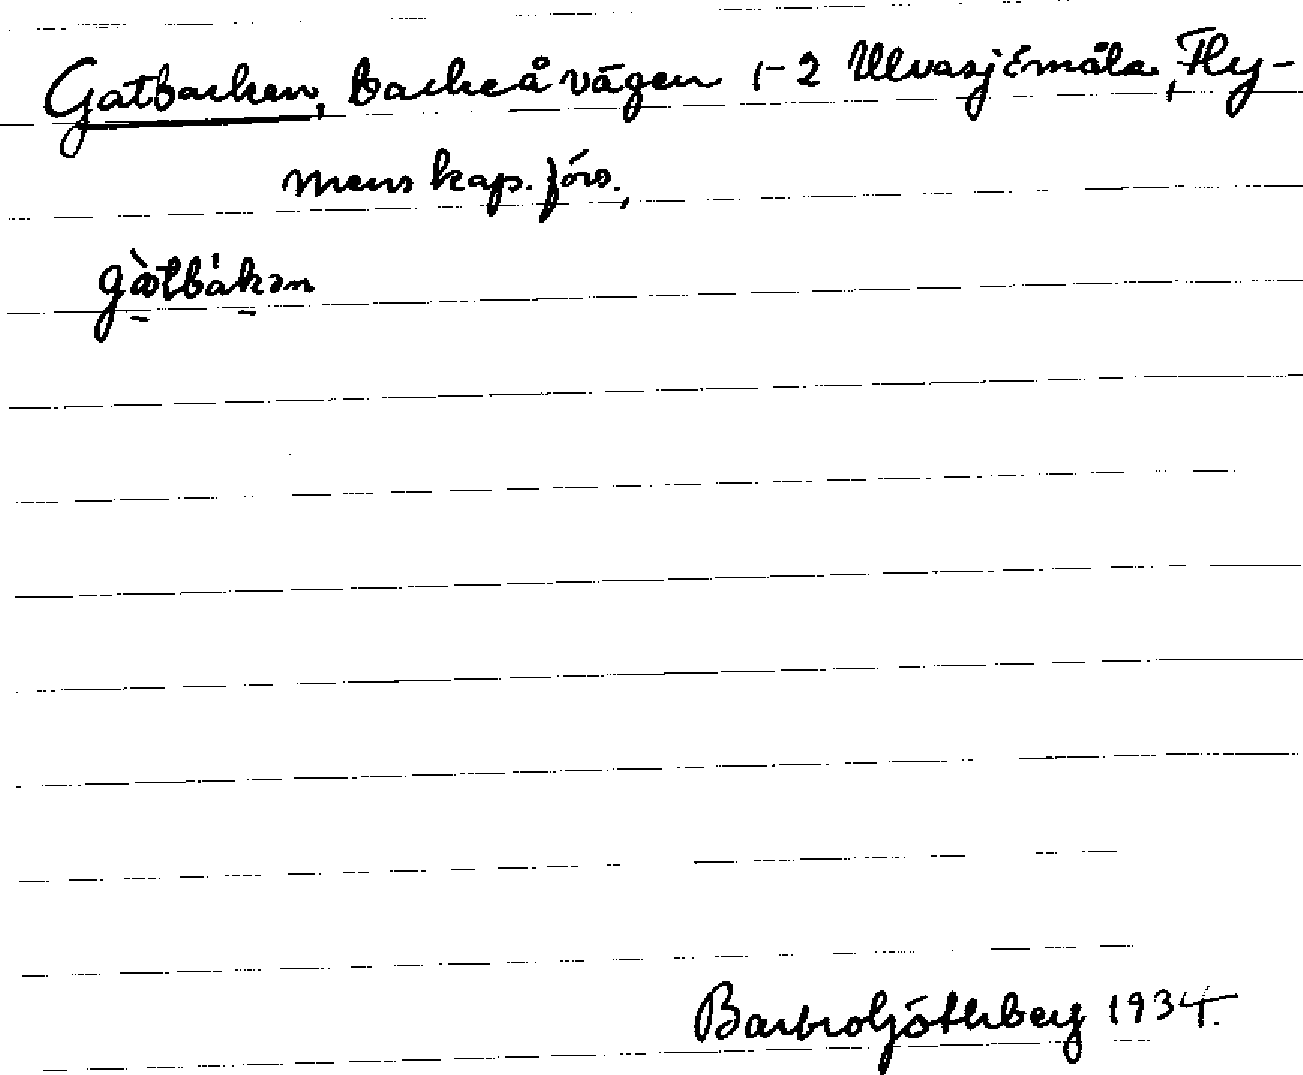 Gatbacken, backe å vägen 1-2 Ulvasjömåla, Fly-
mens kap.förs.,
Barbro Göthberg 1934.